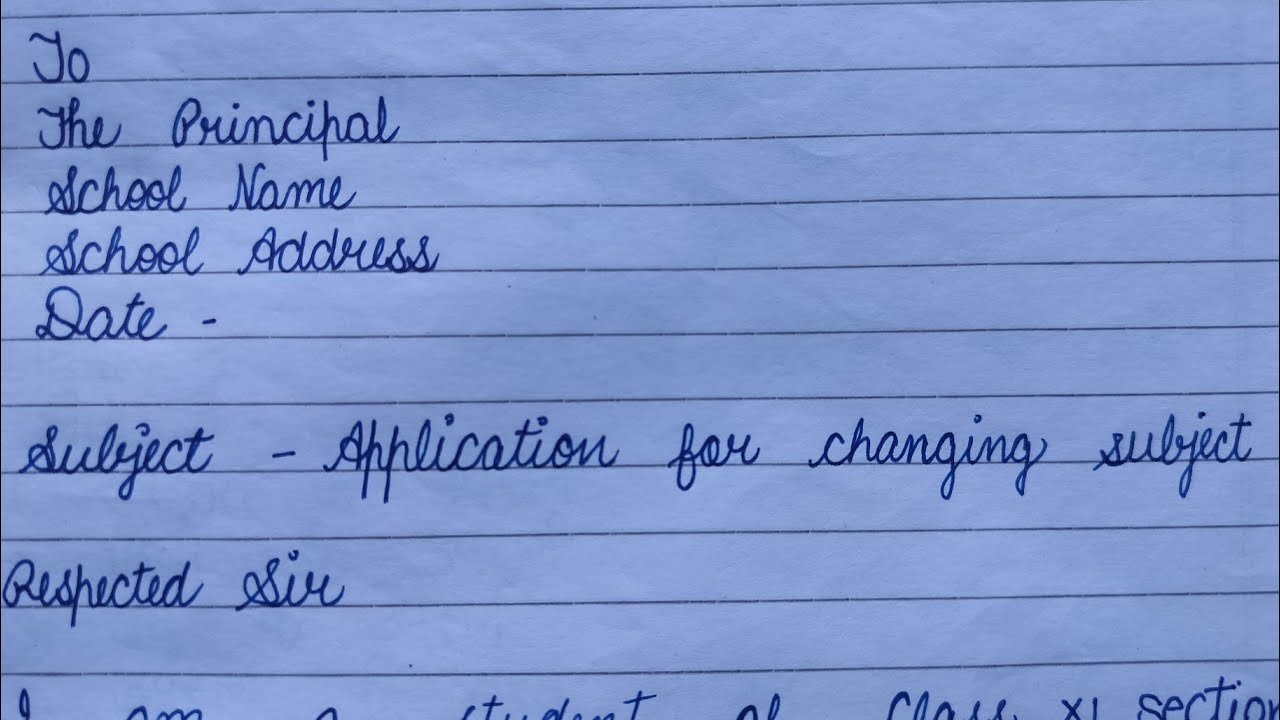 To
The Principal
School Name
School Address
Date -
Subject - Application for changing subject
Respected Sir
I am a student of class XI section